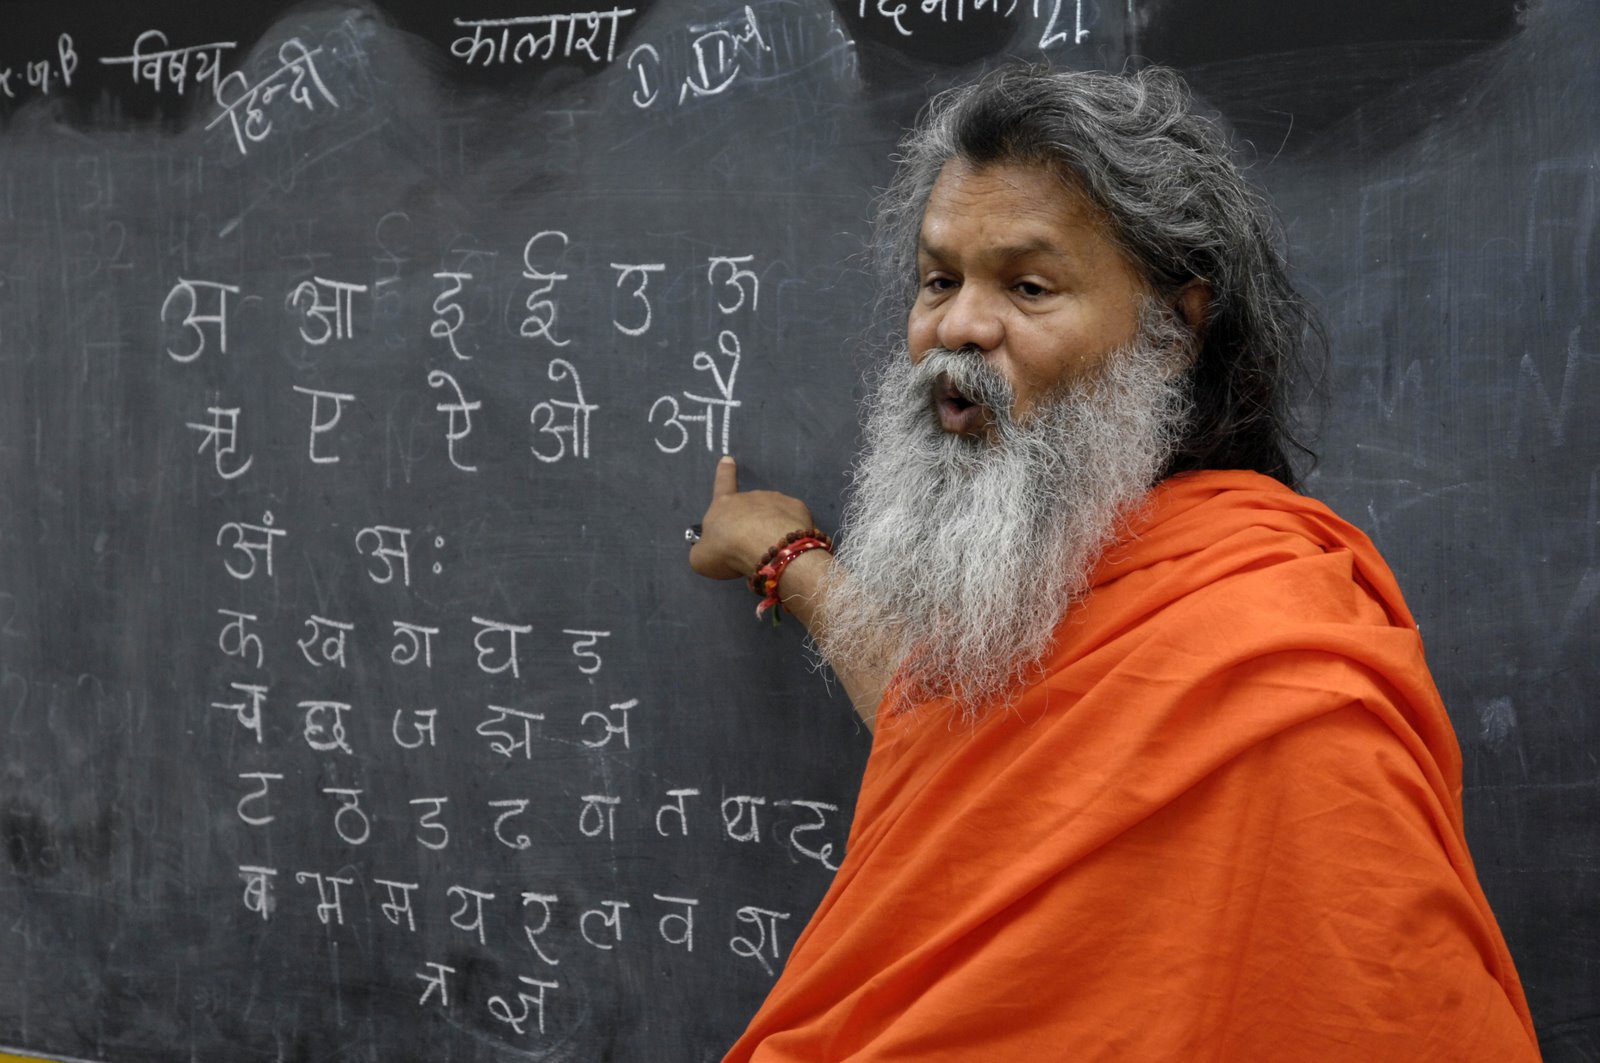 विषय हिन्दी कालाश
अ आ इ ई उ ऊ
ऋ ए ऐ ओ औ
अं अः
क ख ग घ ड़
च छ ज झ ञ
ट ठ ड ढ ण त थ द
ब भ म य र ल व श
त्र ज्ञ